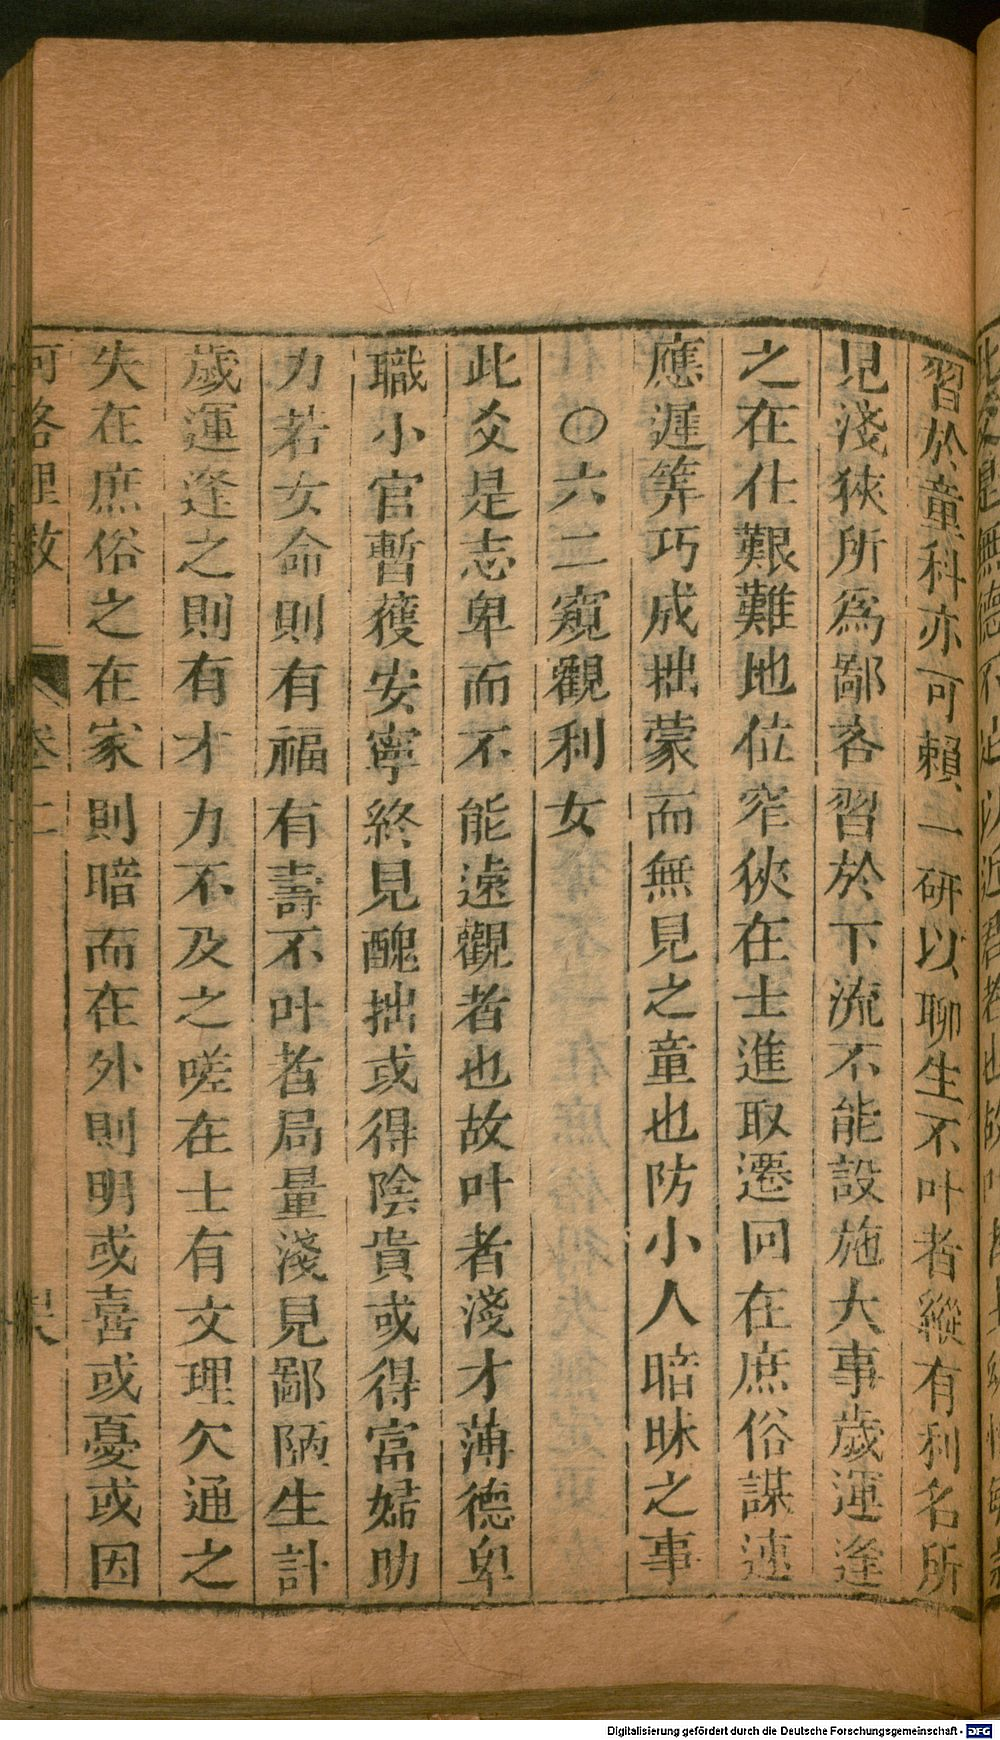 習於童科亦可賴一研以聊生不叶者縱有利名所
見淺狹所爲鄙吝習於下流不能設施大事歲運逢
之在仕艱難地位窄狹在士進取遷回在庶俗謀速
應遲筭巧成拙蒙而無見之童也防小人暗昧之事
○六二窺觀利女
此爻是志卑而不能遠觀者也故叶者淺才薄德卑
職小官暫獲安寧終見醜拙或得陰貴或得富婦助
力若女命則有福有壽不叶者局量淺見鄙陋生計
歲運逢之則有才力不及之嗟在士有文理欠通之
失在庶俗之在家則暗而在外則明或喜或憂或因
河洛理數 卷二
Digitalisierung gefördert durch die Deutsche Forschungsgemeinschaft - DFG